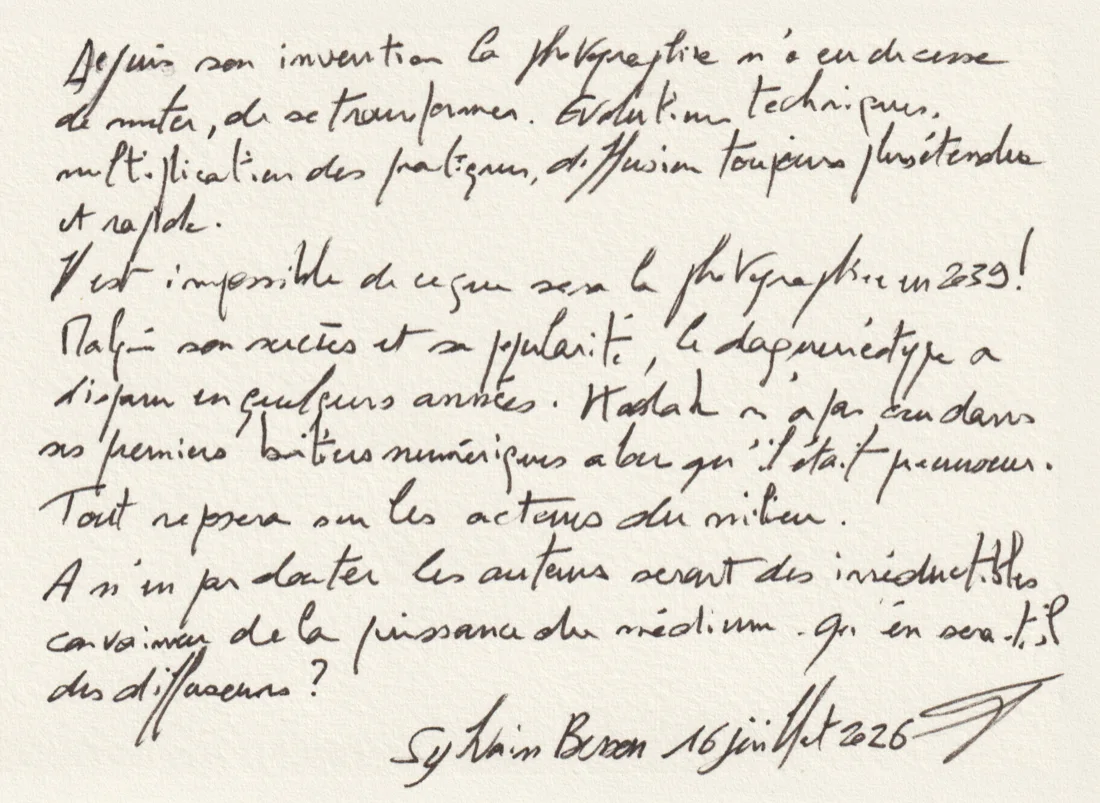 Depuis son invention la photographie n'a eu de cesse
de muter, de se transformer. Evolutions techniques,
multiplication des pratiques, diffusion toujours plus étendue
et rapide.
Il est impossible de ce que sera la photographie en 2039!
Malgré son succès et sa popularité, le daguerréotype a
disparu en quelques années. Kodak n'a pas cru dans
ses premiers boîtiers numériques alors qu'il était précurseur.
Tout reposera sur les acteurs du milieu.
A n'en pas douter les auteurs seront des irréductibles
convaincu de la puissance du médium. Qu'en sera-t-il
des diffuseurs ?
Sylvain Besson 16 juillet 2026